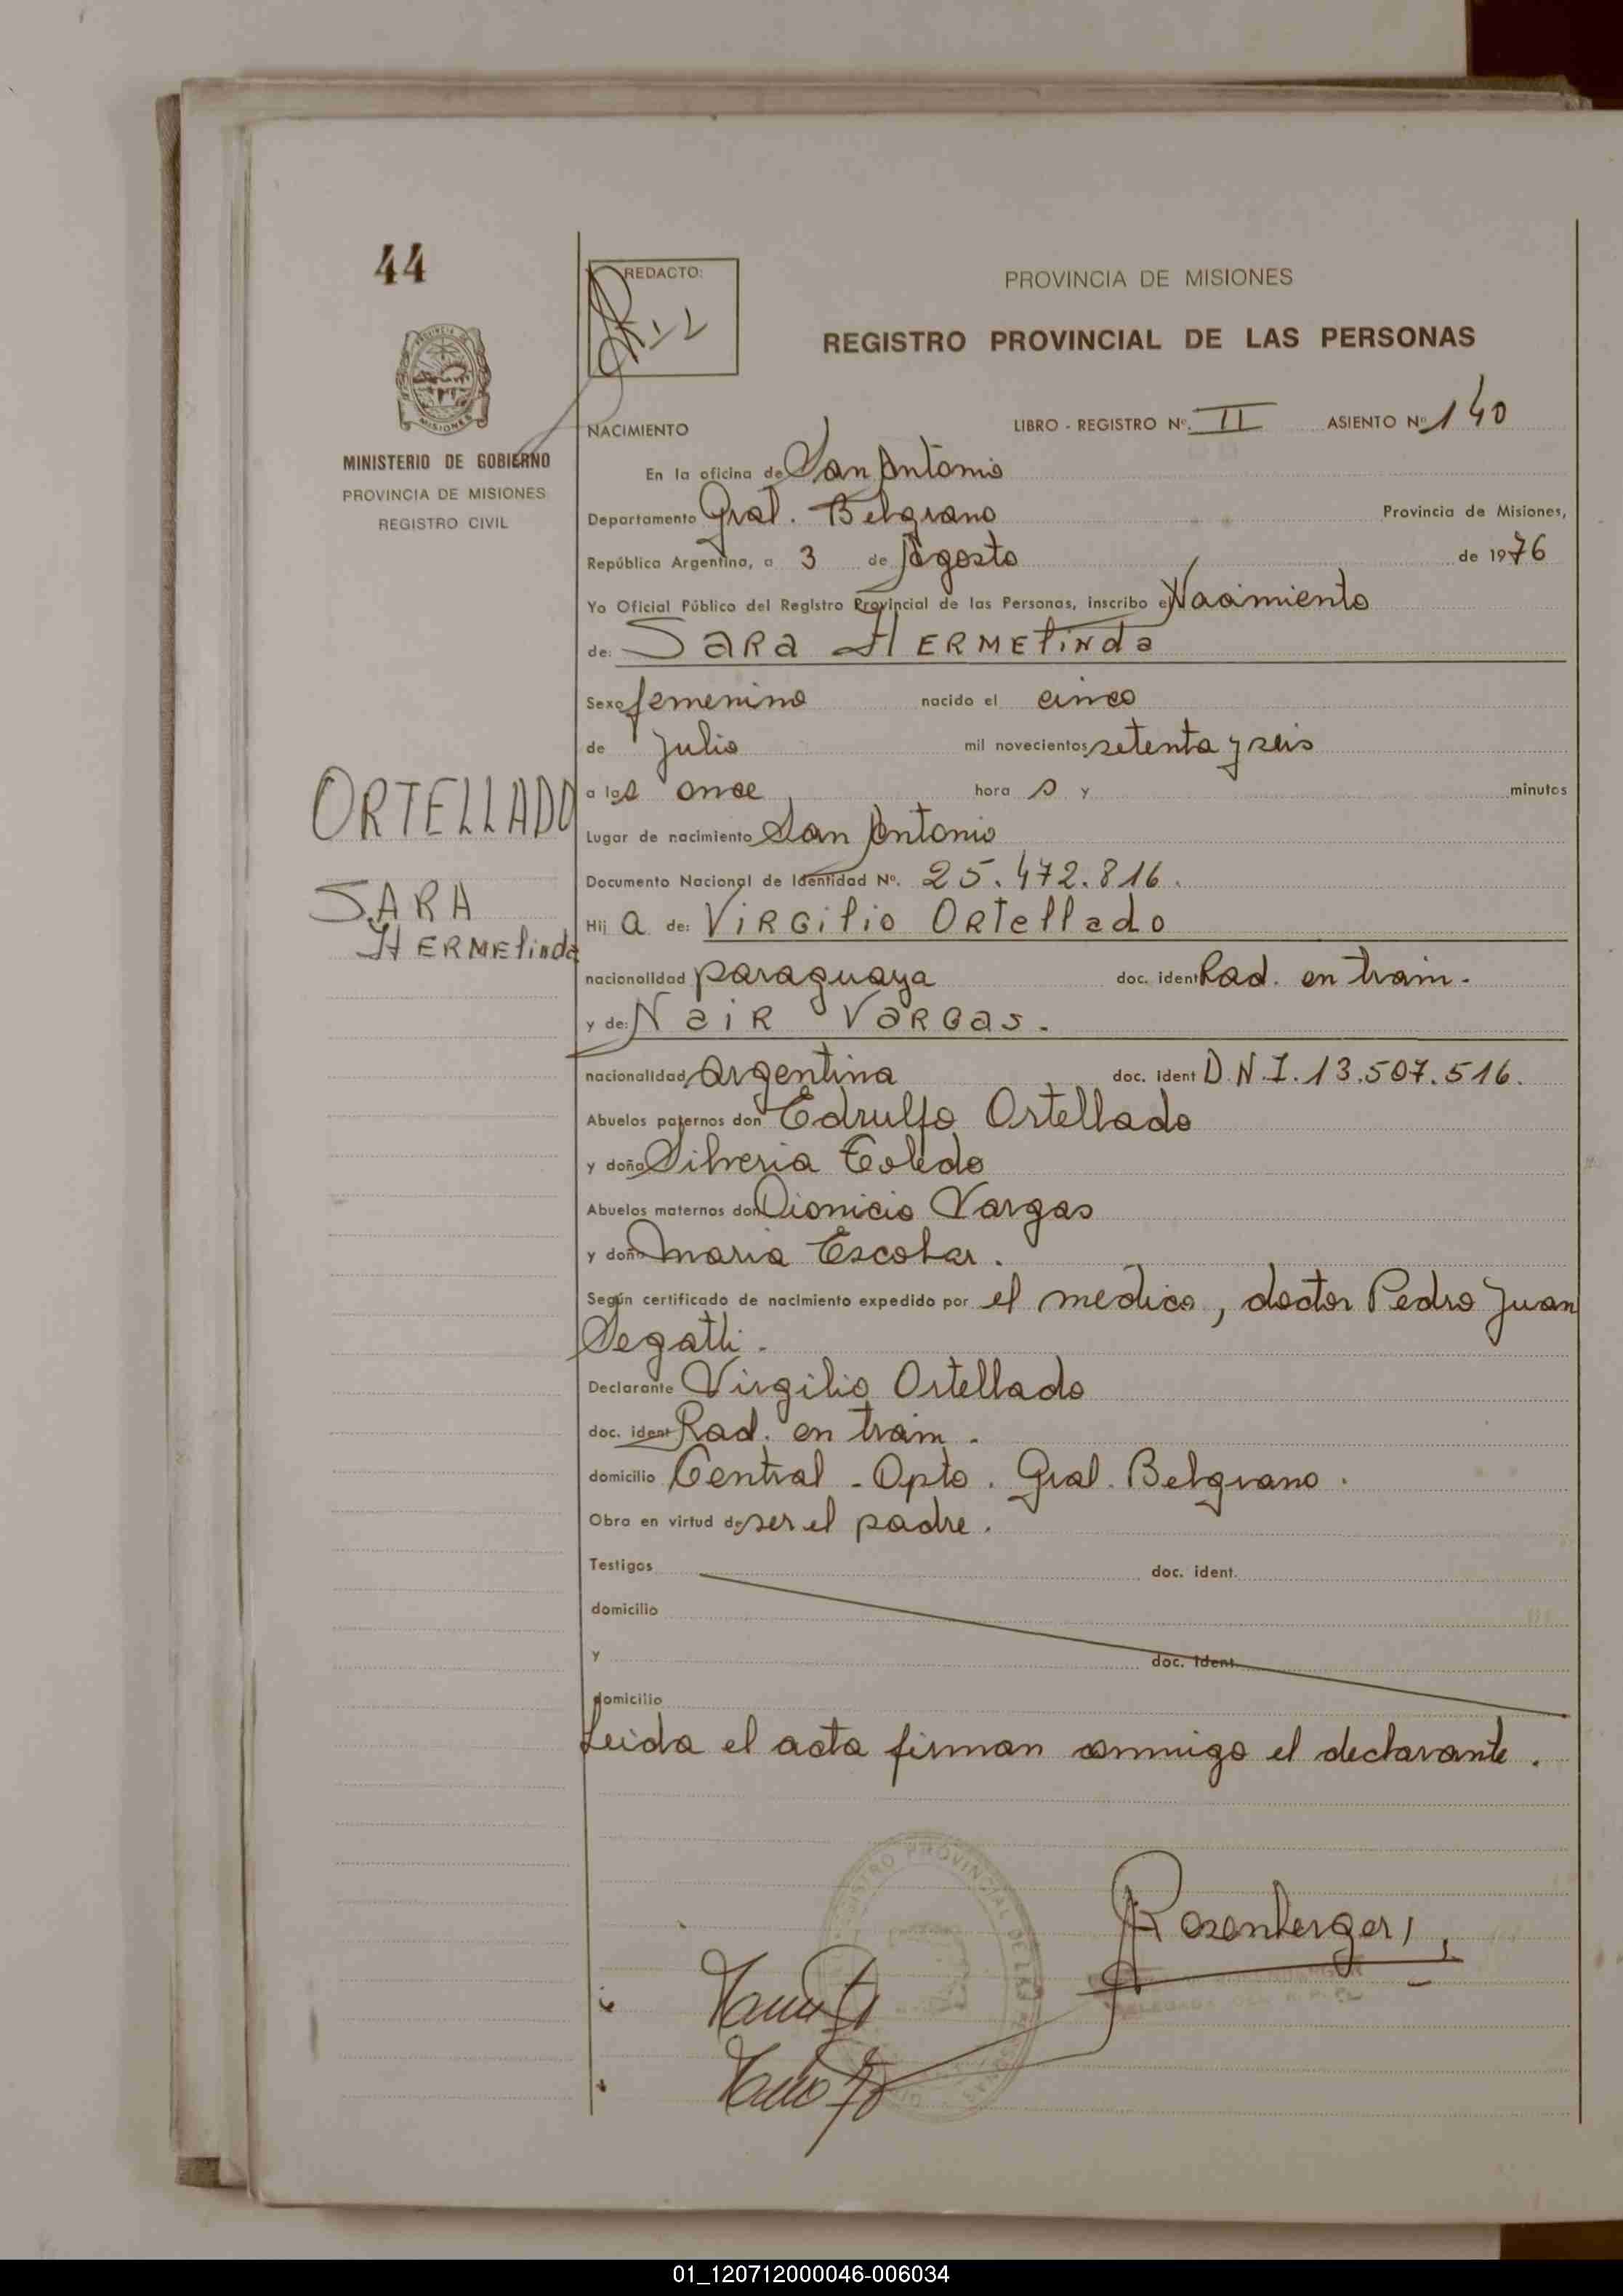 44
REDACTO:
PROVINCIA DE MISIONES
REGISTRO PROVINCIAL DE LAS PERSONAS
MISIONES
MINISTERIO DE GOBIERNO
PROVINCIA DE MISIONES
REGISTRO CIVIL
NACIMIENTO LIBRO - REGISTRO Nº. II ASIENTO Nº 140
En la oficina de San Antonio
Departamento Gral. Belgrano Provincia de Misiones,
República Argentina, a 3 de Agosto de 1976
Yo Oficial Público del Registro Provincial de las Personas, inscribo el Nacimiento
de: SARA HERMElinda
Sexo femenino nacido el cinco
de Julio mil novecientos setenta y seis
a las once hora s y minutos
ORTELLADO
Lugar de nacimiento San Antonio
Documento Nacional de Identidad Nº. 25.472.816.
SARA
HERMElinda
Hij a de: VIRGilio ORTellado
nacionalidad paraguaya doc. ident Rad. en tram.
y de: NaiR VaRGas.
nacionalidad argentina doc. ident D.N.I. 13.507.516.
Abuelos paternos don Edrulfo Ortellado
y doña Silveria Toledo
Abuelos maternos don Dionicio Vargas
y doña Maria Escobar.
Según certificado de nacimiento expedido por el medico, doctor Pedro Juan
Segatti.
Declarante Virgilio Ortellado
doc. ident Rad. en tram.
domicilio Central - Dpto. Gral. Belgrano.
Obra en virtud de ser el padre.
Testigos doc. ident.
domicilio
y doc. ident.
domicilio
Leida el acta firman conmigo el declarante.
REGISTRO PROVINCIAL DE LAS PERSONAS
Rosenberger
01_120712000046-006034